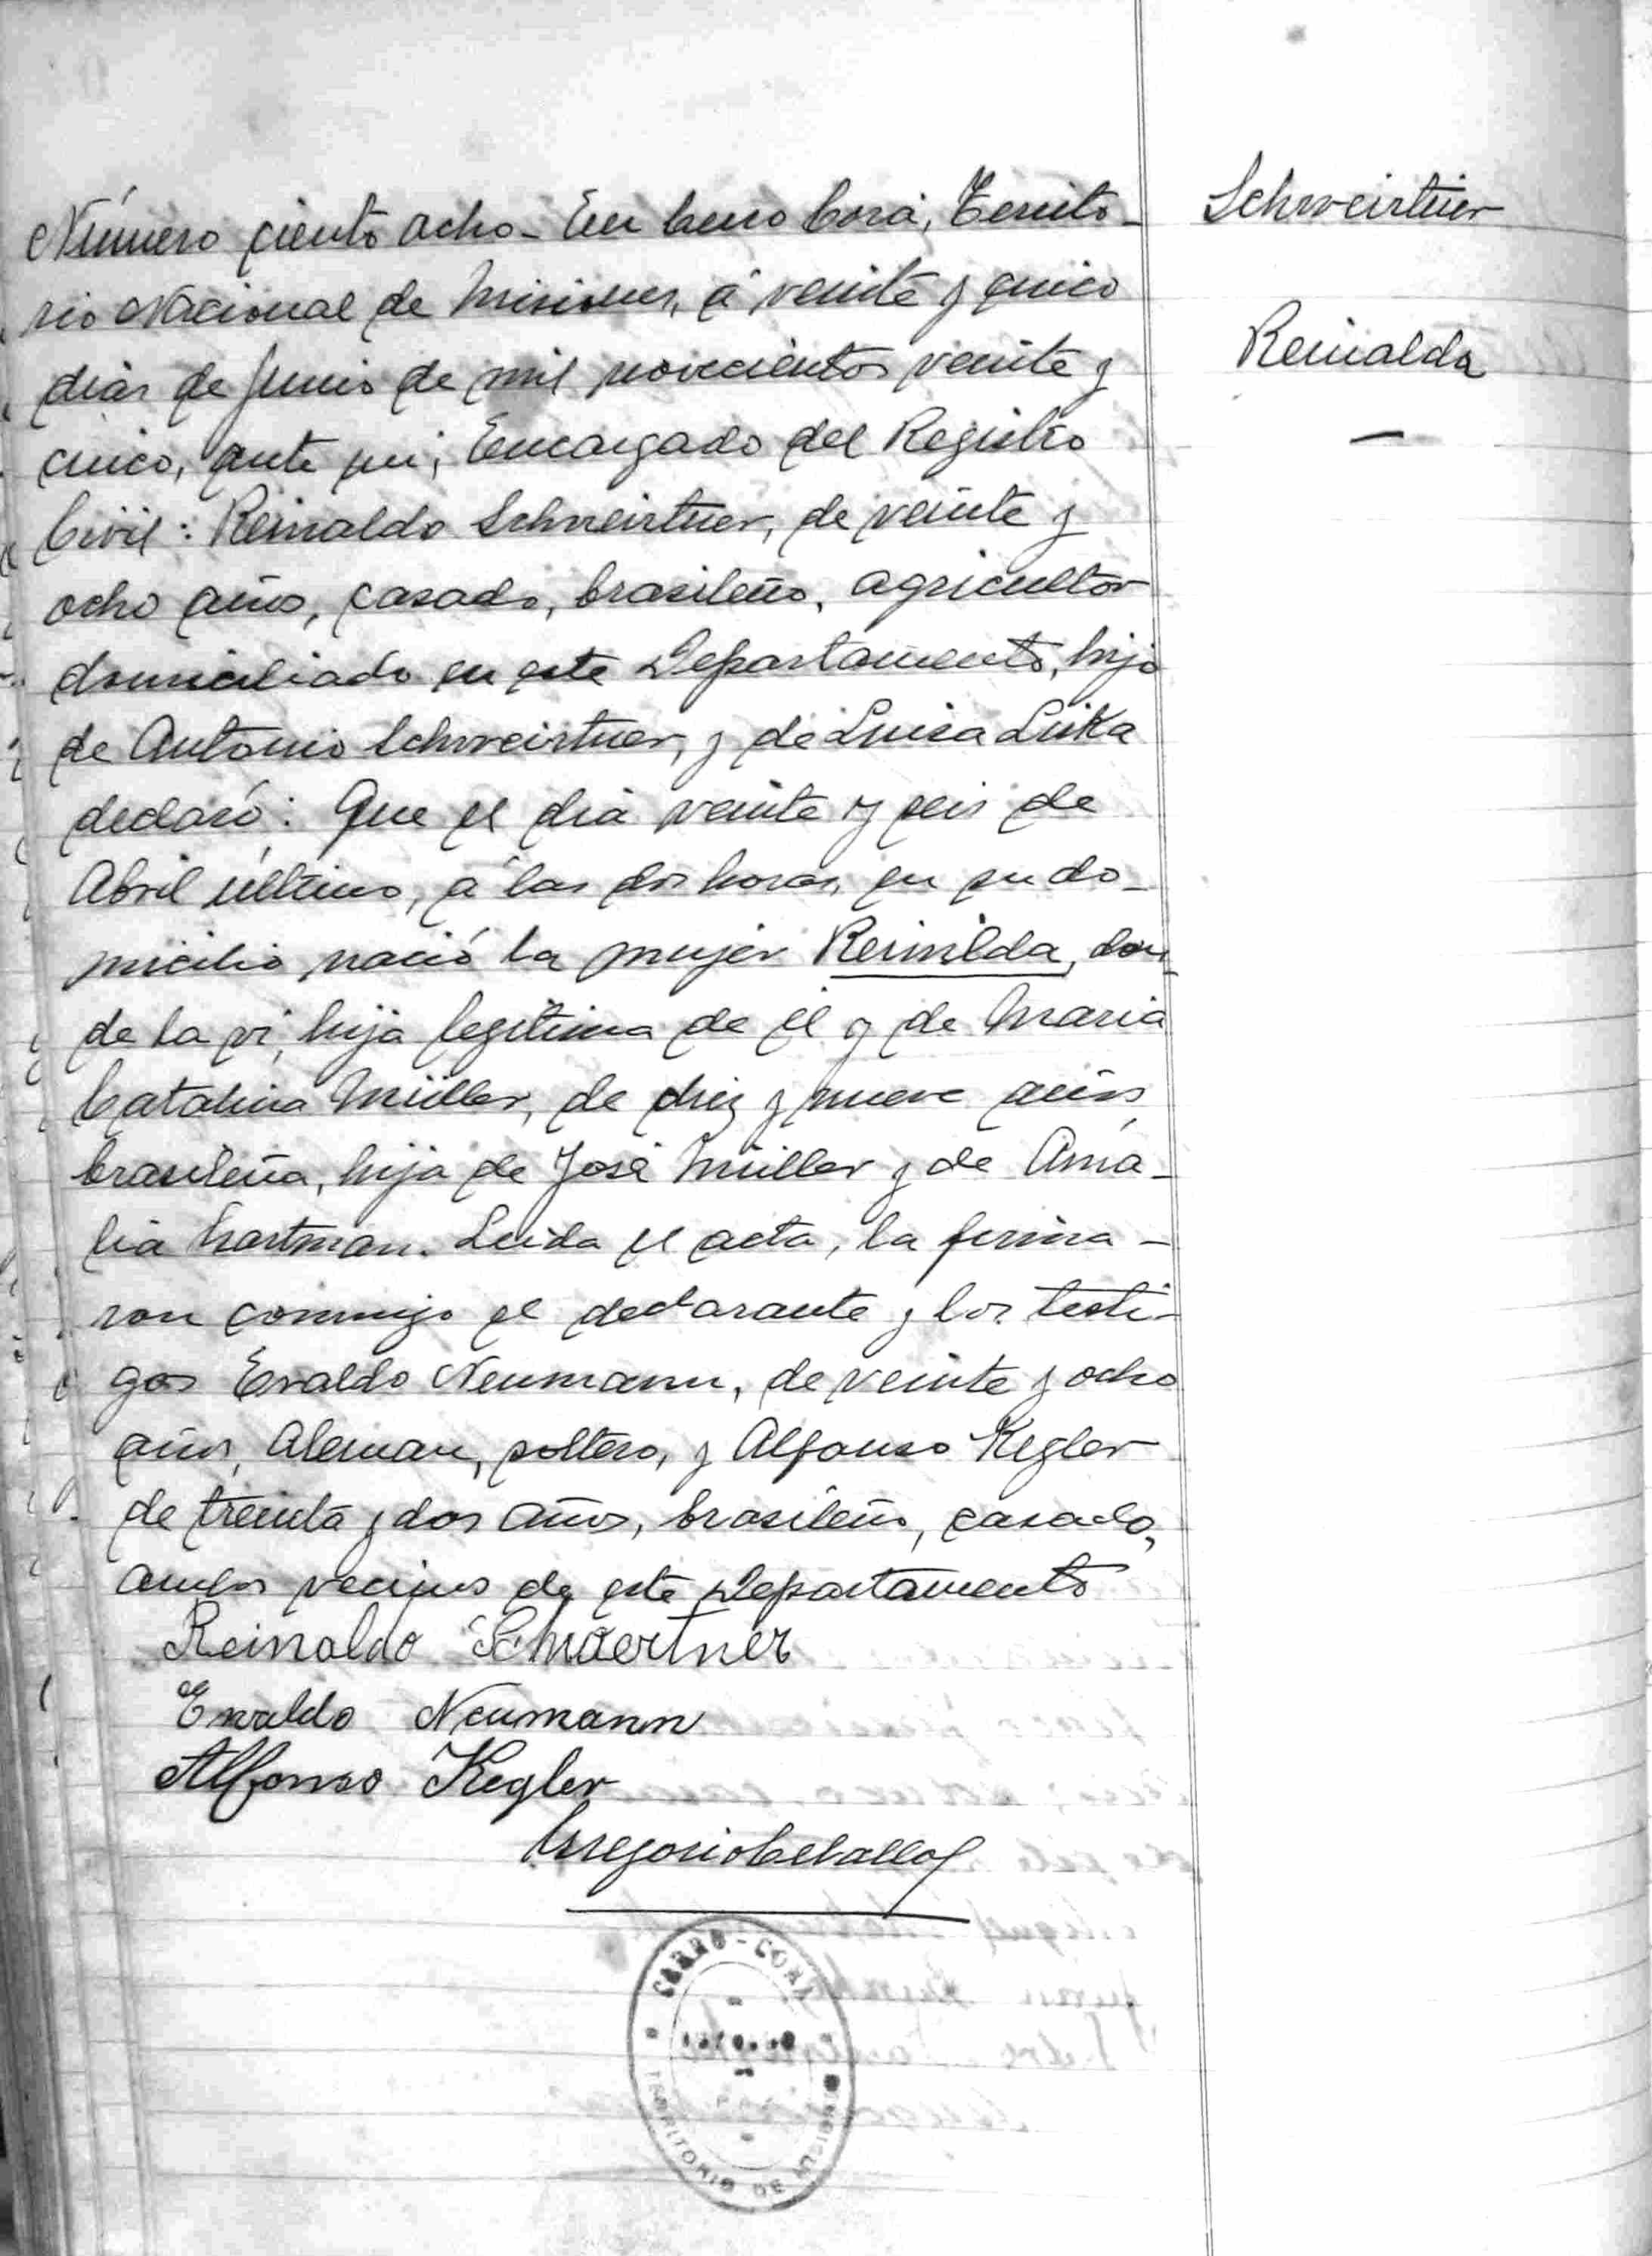 Schweirtner
Reinalda
Número ciento ocho - En Cerro Corá, Territo-
rio Nacional de Misiones, á veinte y cinco
dias de Junio de mil novecientos veinte y
cinco, ante mi, Encargado del Registro
Civil: Reinaldo Schweirtner, de veinte y
ocho años, casado, brasileño, agricultor
domiciliado en este Departamento, hijo
de Antonio Schweirtner, y de Luisa Luka
declaró: Que el dia veinte y seis de
Abril último, á las dos horas, en su do-
micilio nació la mujer Reinilda, don-
de la vi, hija legitima de él y de Maria
Catalina Müller, de diez y nueve años,
brasileña, hija de José Müller y de Ama-
lia Hartman. Leida el acta, la firma-
ron conmigo el declarante y los testi-
gos Evaldo Neumann, de veinte y ocho
años, Aleman, soltero, y Alfonso Kegler
de treinta y dos años, brasileño, casado,
ambos vecinos de este Departamento
Reinaldo Schwertner
Evaldo Neumann
Alfonso Kegler
Gregorio Ceballos
CERRO-CORÁ
TERRITORIO DE MISIONES